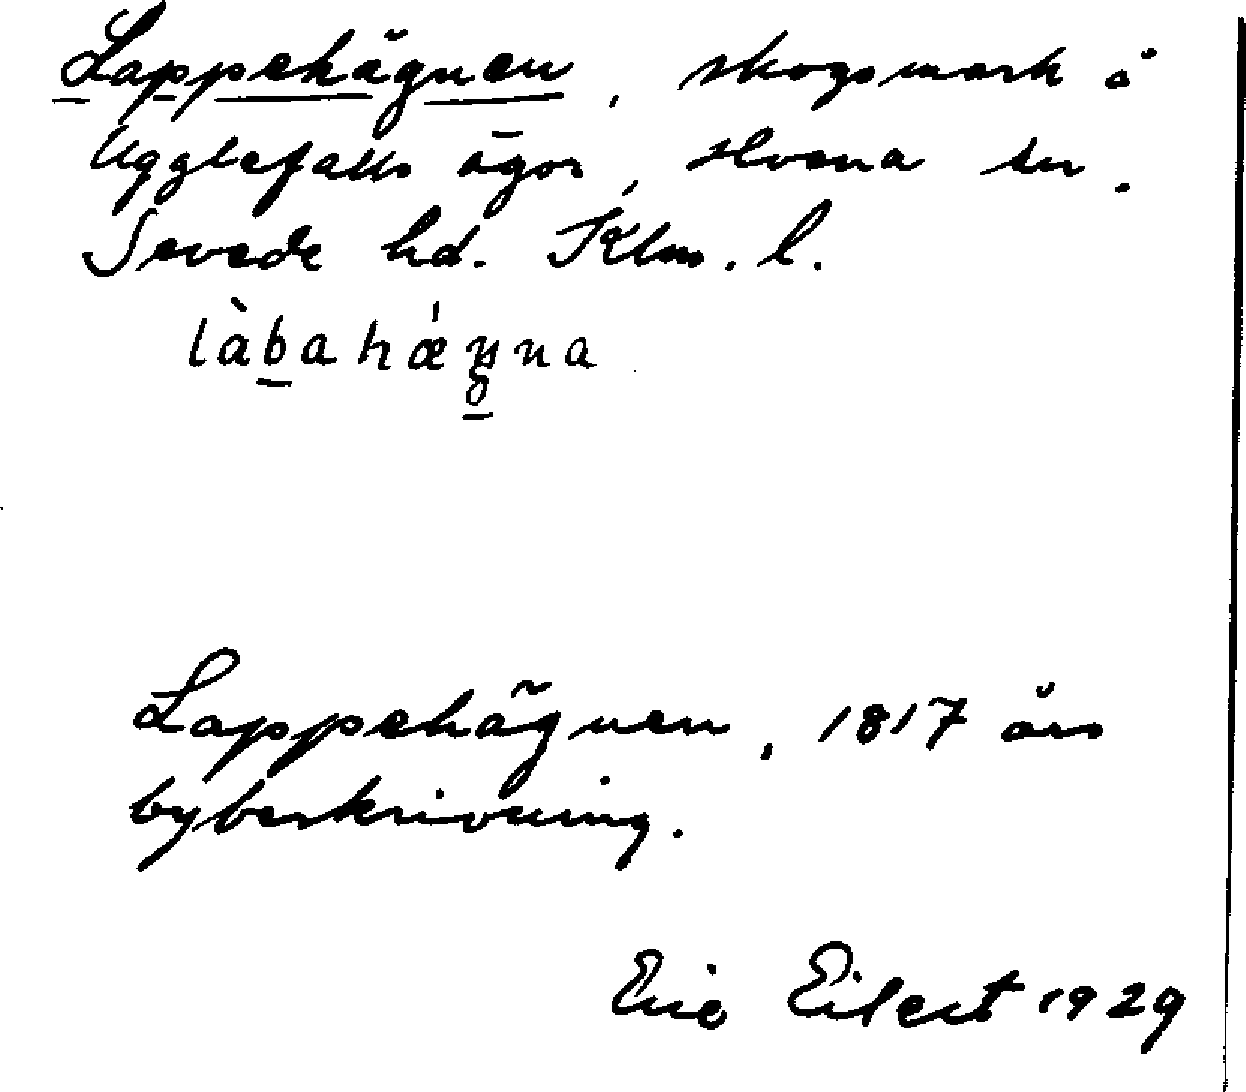 Lappehägnen, skogsmark å
Ugglefalls ägor, Hvena sn.
Sevede hd. Klm. l.
làbahǽŋna
Lappehägnen, 1817 års
bybeskrivning.
Eric Eilert 1929